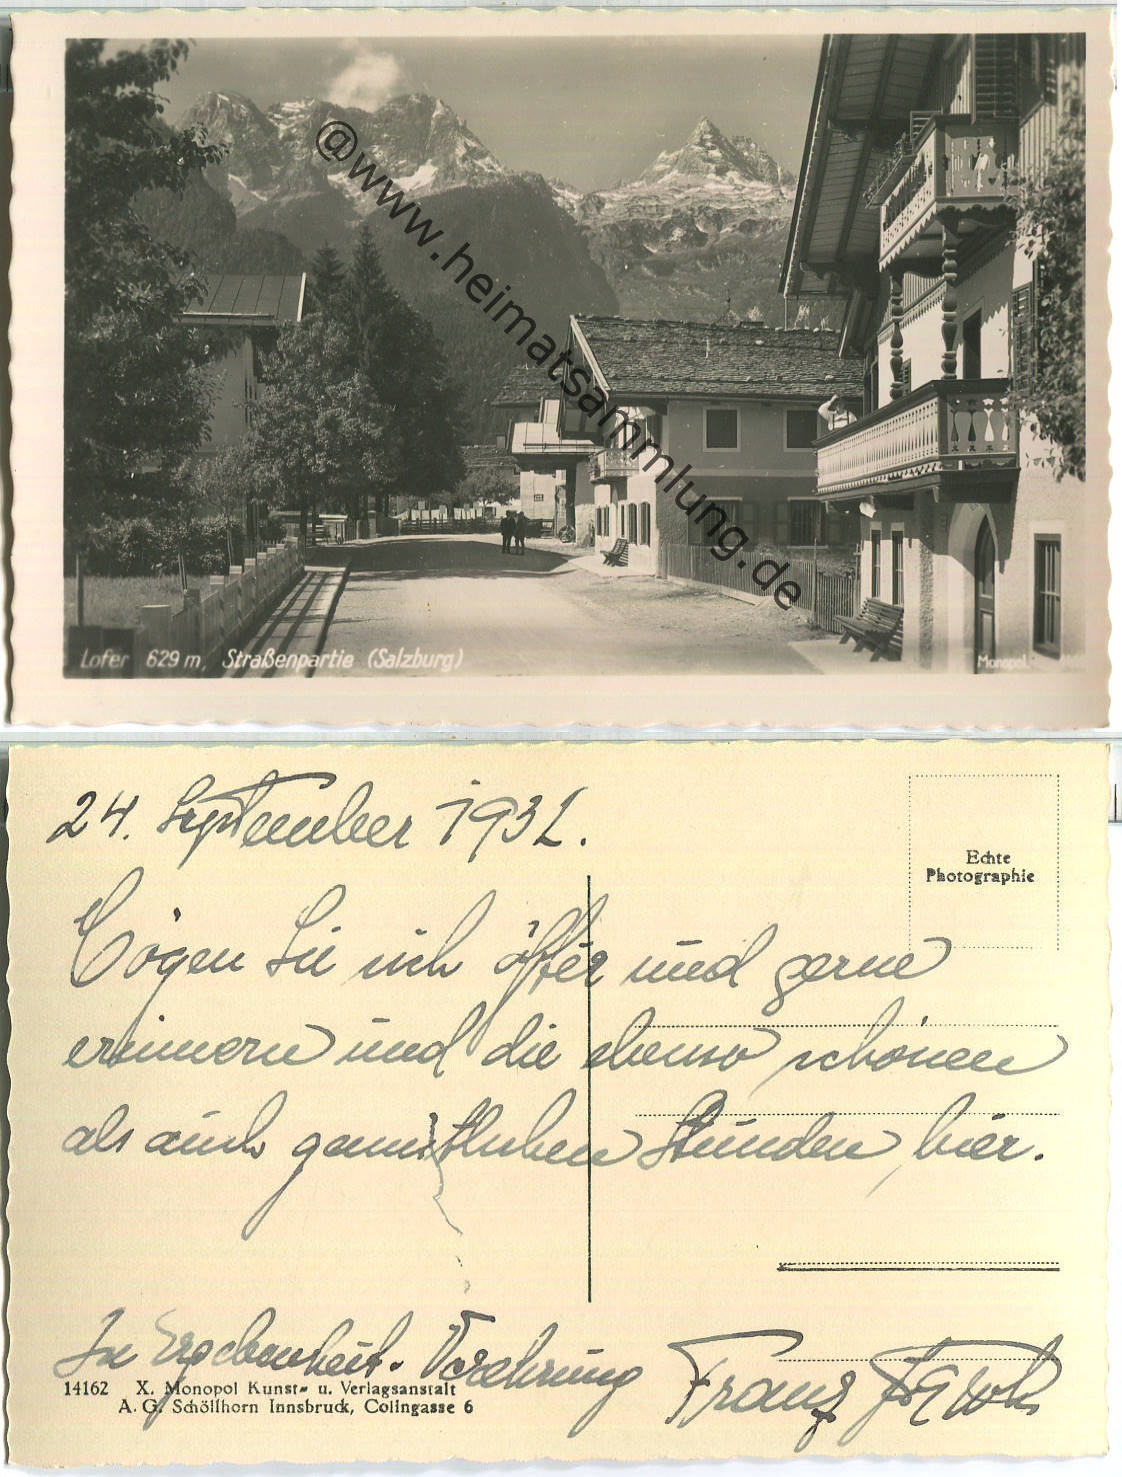 @www.heimatsammlung.de
Lofer 629 m, Straßenpartie (Salzburg)
Monopol.
24. September 1931.
Echte
Photographie
Mögen Sie sich öfter und gerne
erinnern und die ebenso schönen
als auch gemütlichen Stunden hier.
In Ergebenheit. Verehrung Franz
14162 X. Monopol Kunst- u. Verlagsanstalt
A. G. Schöllhorn Innsbruck, Colingasse 6